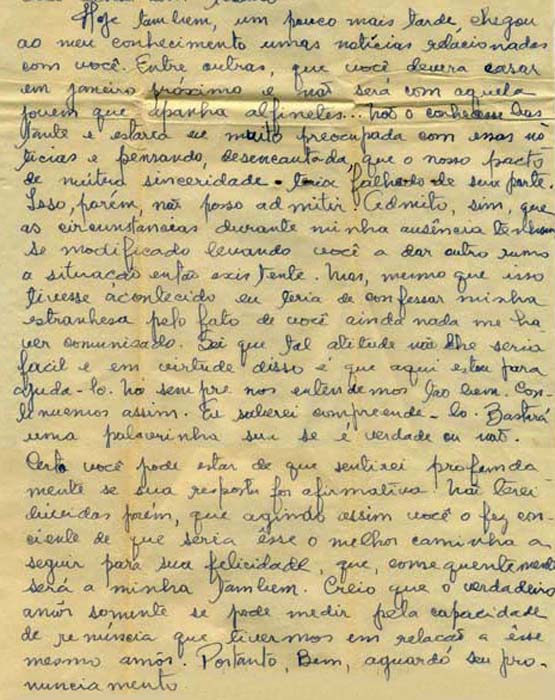 Hoje tambem, um pouco mais tarde, chegou
ao meu conhecimento umas notícias relacionadas
com você. Entre outras, que você devera casar
em janeiro próximo e não será com aquela
jovem que apanha alfinetes... Não o conhecesse bas-
tante e estaria eu muito preocupada com essas no
tícias e pensando, desencantada, que o nosso pacto
de mútua sinceridade teria falhado de sua parte.
Isso, porém, não posso admitir. Admito, sim, que
as circunstancias durante minha ausência tenham
se modificado levando você a dar outro rumo
a situação então existente. Mas, mesmo que isso
tivesse acontecido eu teria de confessar minha
estranhesa pelo fato de você ainda nada me ha
ver comunicado. Sei que tal atitude não lhe seria
facil e em virtude disso é que aqui estou para
ajuda-lo. Nós sempre nos entendemos tão bem. Con-
tinuemos assim. Eu saberei compreende-lo. Bastará
uma palavrinha sua se é verdade ou não.
Certo você pode estar de que sentirei profunda
mente se sua resposta for afirmativa. Não terei
dúvidas porém, que agindo assim você o fez con
ciente de que seria êsse o melhor caminho a
seguir para sua felicidade, que, consequentemente
será a minha tambem. Creio que o verdadeiro
amôr somente se pode medir pela capacidade
de renúncia que tivermos em relação a êsse
mesmo amôr. Portanto, Bem, aguardo seu pro-
nunciamento.